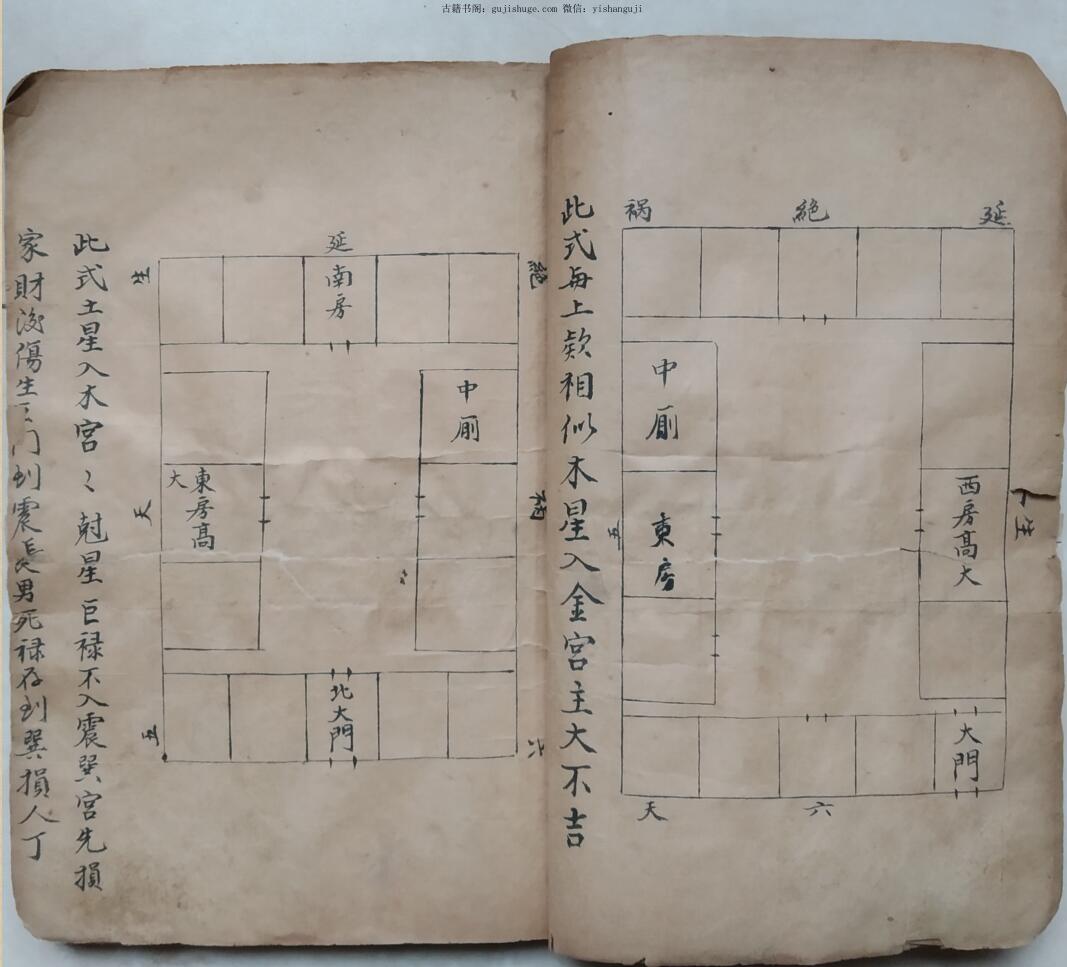 古籍书阁：gujishuge.com 微信：yishanguji
延
絶
祸
生
五
中廁
東房
西房高大
大門
天
六
此式每上款相似木星入金宮主大不吉
延
絶
生
南房
中廁
東房高大
天
禍
北大門
五
六
此式土星入木宮〻尅星巨禄不入震巽宮先損
家財後傷生
门到震長男死禄存到巽損人丁